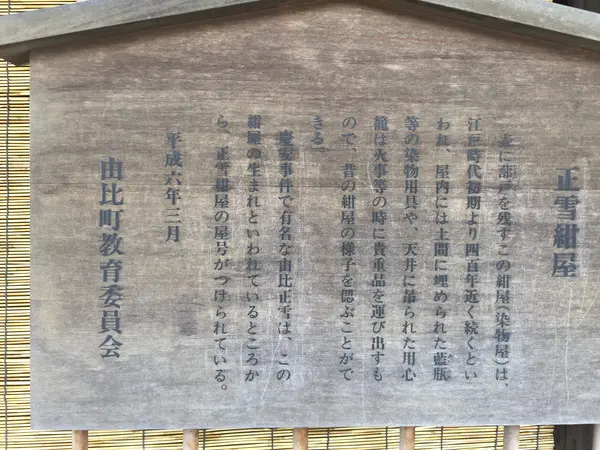 正雪紺屋
に蔀戸を残すこの紺屋(染物屋)は、
江戸時代初期より四百年近く続くとい
われ、屋内には土間に埋められた藍瓶
等の染物用具や、天井に吊られた用心
籠は火事等の時に貴重品を運び出すも
ので、昔の紺屋の様子を偲ぶことがで
きる。
慶安事件で有名な由比正雪は、この
紺屋の生まれといわれているところか
ら、正雪紺屋の屋号がつけられている。
平成六年三月
由比町教育委員会